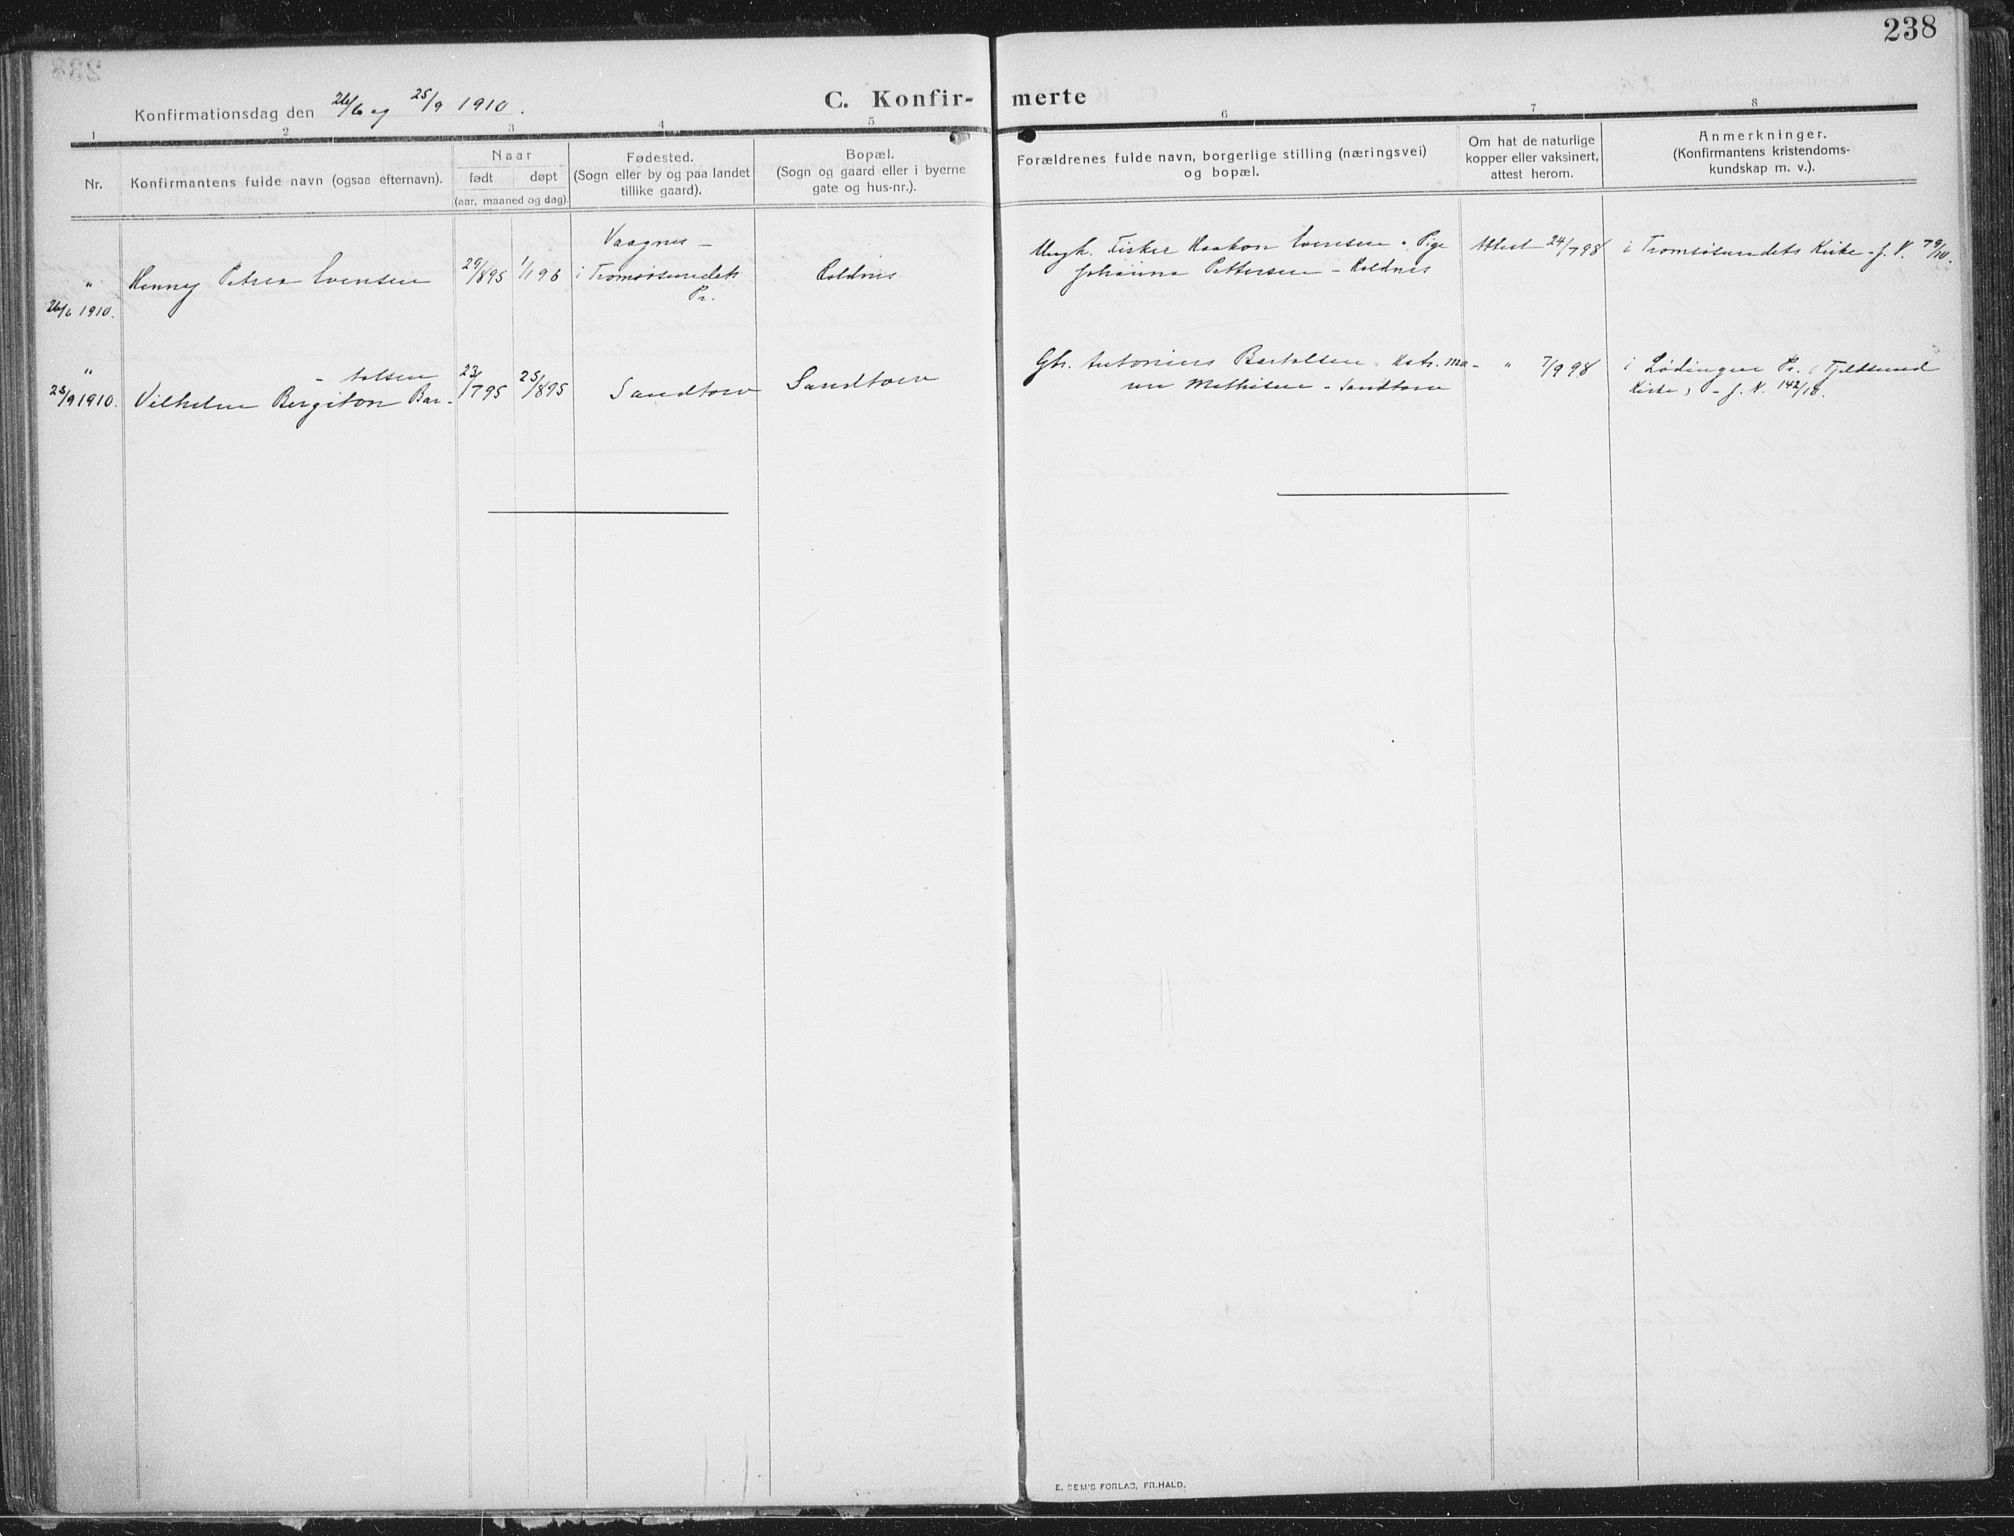 238
Konfirmationsdag den 26/6 og 25/9 1910.
C. Konfir- merte
1 2 3 4 5 6 7 8
Nr.
Konfirmantens fulde navn (ogsaa efternavn).
Naar
født døpt
(aar, maaned og dag).
Fødested.
(Sogn eller by og paa landet
tillike gaard).
Bopæl.
(Sogn og gaard eller i byerne
gate og hus-nr.).
Forældrenes fulde navn, borgerlige stilling (næringsvei)
og bopæl.
Om hat de naturlige
kopper eller vaksinert,
attest herom.
Anmerkninger.
(Konfirmantens kristendoms-
kundskap m. v.).
"
26/6 1910.
Henny Petrea Evensen
29/8 95 1/1 96
Vaagnes -
i Tromsøsundets
Pr.
Coldnes
Ungk. Fisker Haakon Evensen o. Pige
Johanna Pettersen - Koldnes
Attest 24/7 98
i Tromsøsundets Kirke - f. N. 79/10.
"
25/9 1910.
- tolsen
Vilhelm Bergiton Bar-
23/7 95 25/8 95
Sandtorv
Sandtorv
Gbr. Antonius Bartolsen Hstr. Ma-
ren Mathisen - Sandtorv
" 7/9 98
i Lødingen Pr. i Fjeldsund
Kirke, - f. N. 142/18.
E. SEM'S FORLAG, FR.HALD.